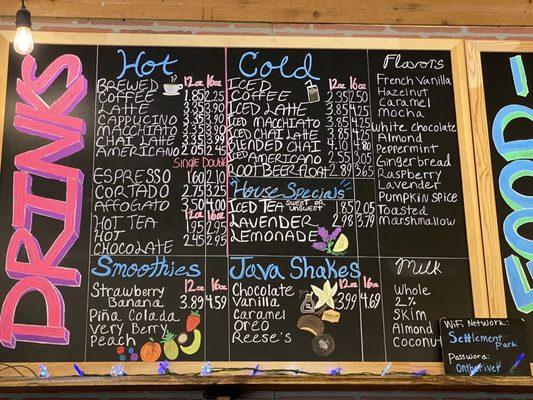 DRINKS
Hot
12oz 16oz
BREWED
COFFEE 1.85 2.25
LATTE 3.35 3.90
CAPPUCCINO 3.35 3.90
MACCHIATO 3.35 3.90
CHAI LATTE 3.35 3.90
AMERICANO 2.05 2.45
Single Double
ESPRESSO 1.60 2.10
CORTADO 2.75 3.25
AFFOGATO 3.50 4.00
12oz 16oz
HOT TEA 1.95 2.95
HOT
CHOCOLATE 2.45 2.95
Cold
12oz 16oz
ICED
COFFEE 2.35 2.50
ICED LATTE 3.85 4.25
ICED MACCHIATO 3.85 4.25
ICED CHAI LATTE 3.85 4.25
BLENDED CHAI 4.10 4.80
ICED AMERICANO 2.55 3.05
ROOT BEER FLOAT 2.89 3.65
"House Specials"
ICED TEA SWEET OR UNSWEET 1.85 2.05
LAVENDER 2.98 3.79
LEMONADE
Flavors
French Vanilla
Hazelnut
Caramel
Mocha
White chocolate
Almond
Peppermint
Gingerbread
Raspberry
Lavender
Pumpkin spice
Toasted
Marshmallow
Smoothies 12oz 16oz
Strawberry
Banana 3.89 4.59
Piña Colada
Very Berry
Mango
Peach
Java Shakes
12oz 16oz
Chocolate 3.99 4.69
Vanilla
Caramel
Oreo
Reese's
Milk
Whole
2%
Skim
Almond
Coconut
FOOD
WiFi Network:
Settlement
Park
Password:
Ontheriver